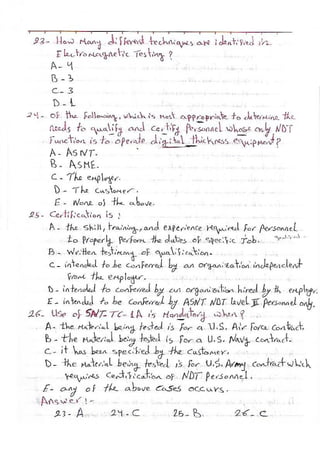 23- How Many different techniques are identified in
Electromagnetic Testing?
A- 4
B- 3
C- 3
D- 1
24- of the following, which is most appropriate to determine the
needs to qualify and certify Personnel whose only NDT
Function is to operate digital thickness equipment?
A- ASNT.
B- ASME.
C- The employer.
D- The Customer.
E- None of the above.
25- Certification is:
A- the skill, training, and experience required for Personnel
to Properly Perform the duties of specific Job.
B- Written testimony of qualification.
C- intended to be conferred by an organization independent
from the employer.
D- intended to conferred by an organization hired by the employer.
E- intended to be conferred by ASNT NDT level III Personnel only.
26- Use of SNT-TC-1A is Mandatory when?
A- the Material being tested is for a U.S. Air Force Contract.
B- the Material being tested is for a U.S. Navy contract.
C- it has been specified by the Customer.
D- the Material being tested is for U.S. Army contract which
requires Certification of NDT Personnel.
E- any of the above cases occurs.
Answer:-
23- A 24- C 25- B 26- C